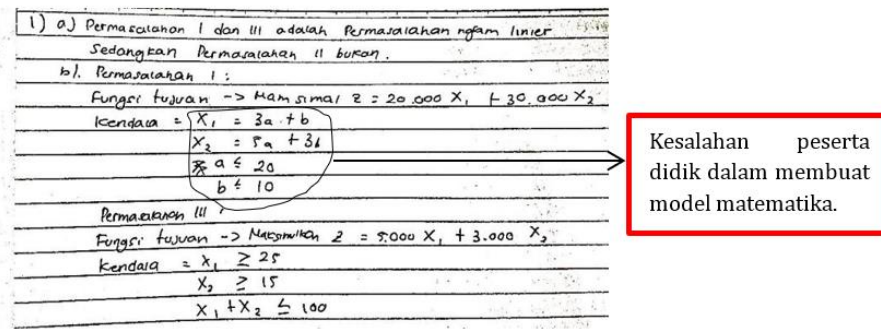 1) a) Permasalahan I dan III adalah Permasalahan ngram linier
Sedangkan Permasalahan II bukan.
b). Permasalahan I :
Fungsi tujuan -> Maksimal Z = 20.000 X₁ + 30.000 X₂
Kendala = X₁ = 3a + b
X₂ = 5a + 3b
a ≤ 20
b ≤ 10
Permasalahan III :
Fungsi tujuan -> Maksimalkan Z = 5.000 X₁ + 3.000 X₂
Kendala = X₁ ≥ 25
X₂ ≥ 15
X₁ + X₂ ≤ 100
Kesalahan peserta
didik dalam membuat
model matematika.